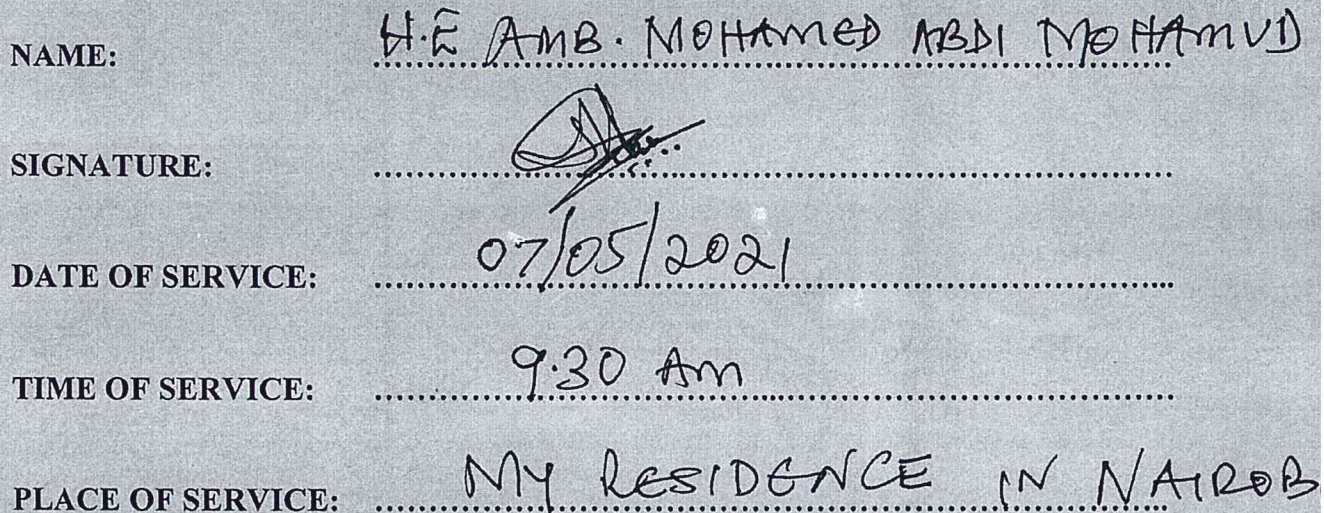 NAME: H.E AMB. MOHAMED ABDI MOHAMUD
SIGNATURE:
DATE OF SERVICE: 07/05/2021
TIME OF SERVICE: 9.30 Am
PLACE OF SERVICE: MY RESIDENCE IN NAIROB